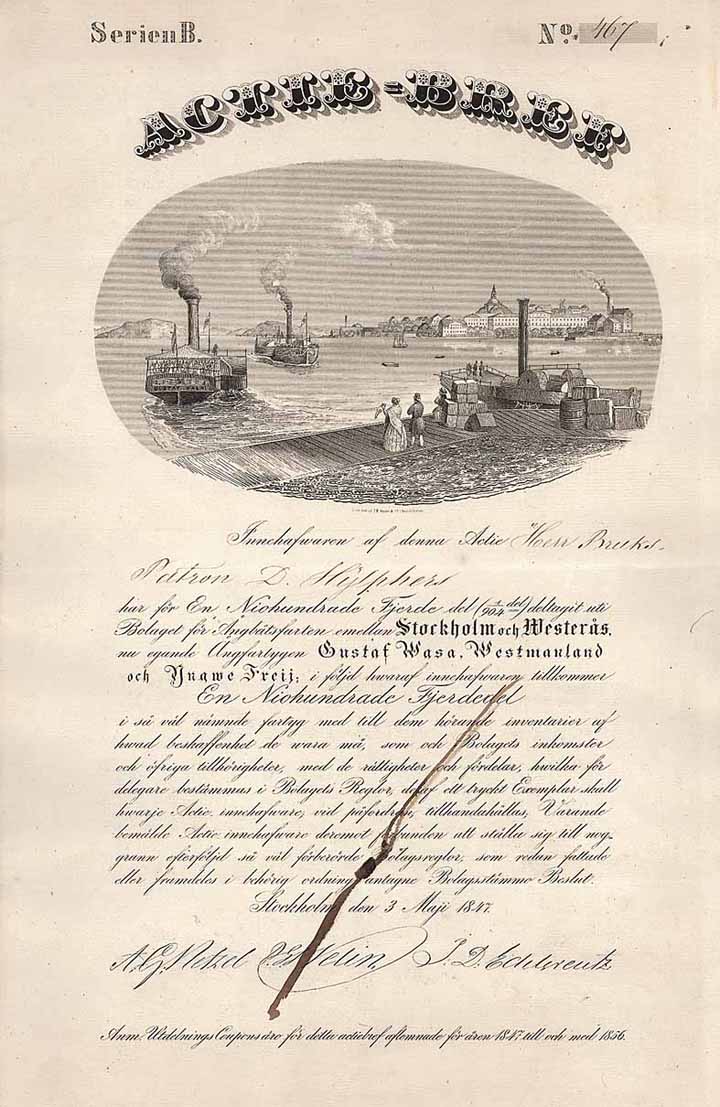 Serien B.
No. 467
ACTIE=BREF
Innehafwaren af denna Actie Herr Bruks-
Patron D. Hylphers
har för En Niohundrade Fjerde del (1/904 del) deltagit uti
Bolaget för Ångbåtsfarten emellan Stockholm och Westerås,
nu egande Ångfartygen Gustaf Wasa, Westmanland
och Yngwe Freij; i följd hwaraf innehafwaren tillkommer
En Niohundrade Fjerdedel
i så väl nämnde fartyg med till dem hörande inventarier af
hwad beskaffenhet de wara må, som och Bolagets inkomster
och öfriga tillhörigheter, med de rättigheter och fördelar, hwilka för
delegare bestämmas i Bolagets Reglor, deraf ett tryckt Exemplar skall
hwarje Actie innehafware, vid påfordran, tillhandahållas, Varande
bemälde Actie innehafware deremot förbunden att ställa sig till nog-
grann efterföljd så väl förberörde Bolagsreglor, som redan fattade
eller framdeles i behörig ordning antagne Bolagsstämmo Beslut.
Stockholm den 3 Maji 1847.
A. G. Netzel Velin J. D. Edelsreutz
Anm. Utdelnings Coupons äro för detta actiebref aflemnade för åren 1847 till och med 1856.